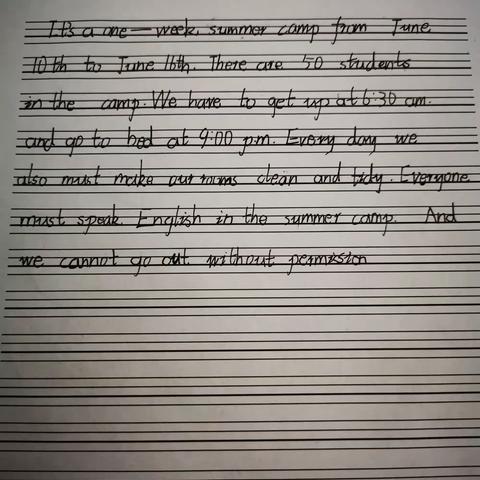 It's a one—week summer camp from June
10th to June 16th. There are 50 students
in the camp. We have to get up at 6:30 am.
and go to bed at 9:00 p.m. Every day we
also must make our rooms clean and tidy. Everyone
must speak English in the summer camp. And
we cannot go out without permission